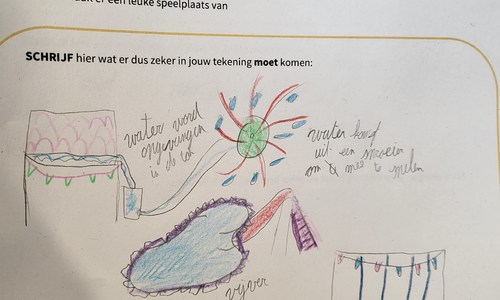 er een leuke speelplaats van
SCHRIJF hier wat er dus zeker in jouw tekening moet komen:
water word
opgevangen
is de ton
water komt
uit een
om mee te
vijver